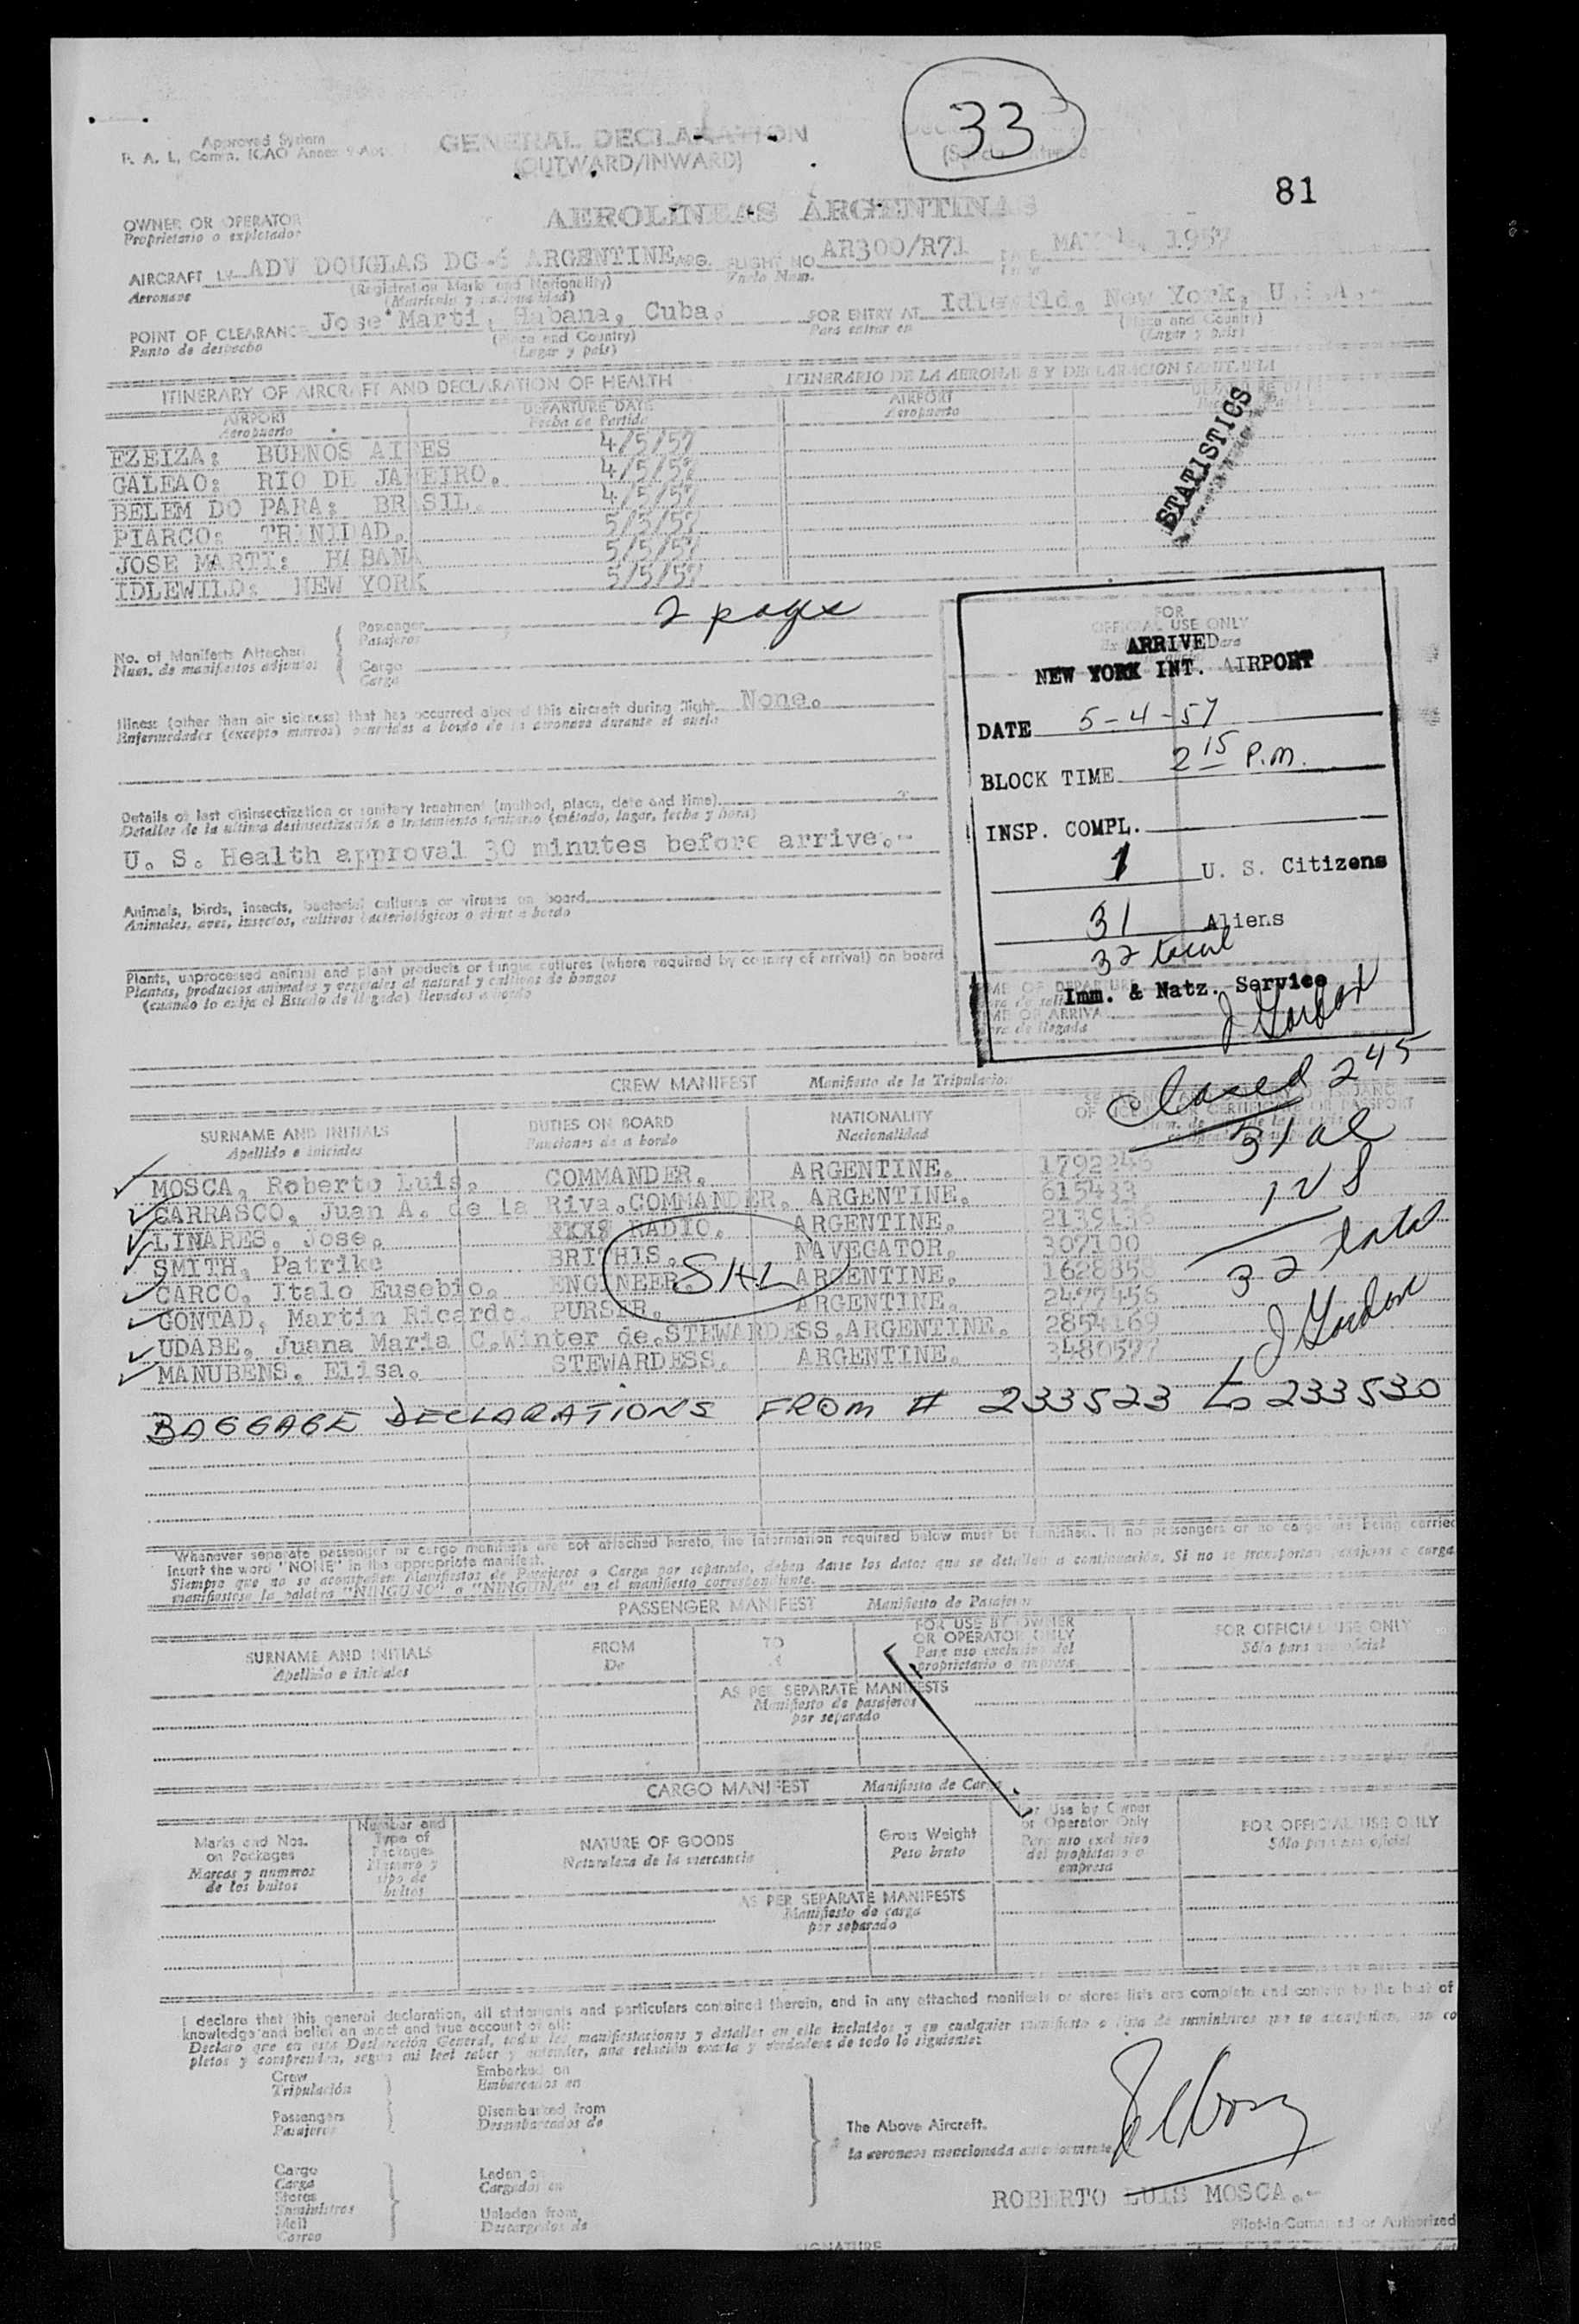 33
Approved System
F. A. L. Comn. ICAO Annex 9-Ap
GENERAL DECLARATION
(OUTWARD/INWARD)
81
OWNER OR OPERATOR
Proprietario o explotador
AEROLINEAS ARGENTINAS
AIRCRAFT LV-ADV DOUGLAS DC-6 ARGENTINE ARG. FLIGHT NO AR300/R71 DATE MAY 4, 1957
Aeronave
(Registration Marks and Nationality)
(Matricula y nacionalidad)
Vuelo Num.
POINT OF CLEARANCE Jose Marti, Habana, Cuba. FOR ENTRY AT Idlewild, New York, U.S.A.-
Punto de despacho
(Place and Country)
(Lugar y país)
Para entrar en
(Place and Country)
(Lugar y país)
ITINERARY OF AIRCRAFT AND DECLARATION OF HEALTH ITINERARIO DE LA AERONAVE Y DECLARACION SANITARIA
AIRPORT
Aeropuerto
DEPARTURE DATE
Fecha de Partida
AIRPORT
Aeropuerto
STATISTICS
EZEIZA: BUENOS AIRES 4/5/57
GALEAO: RIO DE JANEIRO. 4/5/57
BELEM DO PARA: BRASIL. 4/5/57
PIARCO: TRINIDAD. 5/5/57
JOSE MARTI: HABANA 5/5/57
IDLEWILD: NEW YORK 5/5/57
No. of Manifests Attached
Num. de manifiestos adjuntos
Passenger
Pasajeros
2 page
Cargo
Carga
Illness (other than air sickness) that has occurred aboard this aircraft during flight None.
Enfermedades (excepto mareos) ocurridas a bordo de la aeronave durante el vuelo
Details of last disinsectization or sanitary treatment (method, place, date and time)
Detalles de la ultima desinsectización o tratamiento sanitario (método, lugar, fecha y hora)
U. S. Health approval 30 minutes before arrive.-
Animals, birds, insects, bacterial cultures or viruses on board
Animales, aves, insectos, cultivos bacteriológicos o virus a bordo
Plants, unprocessed animal and plant products or fungus cultures (where required by country of arrival) on board
Plantas, productos animales y vegetales al natural y cultivos de hongos
(cuando lo exija el Estado de llegada) llevados a bordo
FOR
OFFICIAL USE ONLY
ARRIVED
NEW YORK INT. AIRPORT
DATE 5-4-57
BLOCK TIME 2 15 P.M.
INSP. COMPL.
1 U. S. Citizens
31 Aliens
32 total
Imm. & Natz. Service
J Gordon
TIME OF DEPARTURE
TIME OF ARRIVAL
Hora de llegada
CREW MANIFEST Manifiesto de la Tripulacion
Closed 245
31 al
1 US
32 total
J Gordon
SURNAME AND INITIALS
Apellido e iniciales
DUTIES ON BOARD
Funciones de a bordo
NATIONALITY
Nacionalidad
MOSCA, Roberto Luis. COMMANDER. ARGENTINE. 1792246
CARRASCO, Juan A. de La Riva. COMMANDER. ARGENTINE. 615433
LINARES, Jose. RADIO. ARGENTINE. 2139136
SMITH, Patrike BRITHIS. NAVEGATOR. 307100
CARCO, Italo Eusebio. ENGINEER. ARGENTINE. 1628858
GONTAD, Martin Ricardo. PURSER. ARGENTINE. 2497456
UDABE, Juana Maria C.Winter de. STEWARDESS. ARGENTINE. 2854169
MANUBENS. Elisa. STEWARDESS. ARGENTINE. 3480577
SHL
BAGGAGE DECLARATIONS FROM # 233523 to 233530
Whenever separate passenger or cargo manifests are not attached hereto, the information required below must be furnished. If no passengers or no cargo are being carried
insert the word "NONE" in the appropriate manifest.
Siempre que no se acompañen Manifiestos de Pasajeros o Carga por separado, deben darse los datos que se detallan a continuación. Si no se transportan pasajeros o carga
manifiestese la palabra "NINGUNO" o "NINGUNA" en el manifiesto correspondiente.
PASSENGER MANIFEST Manifiesto de Pasajeros
SURNAME AND INITIALS
Apellido e iniciales
FROM
De
TO
A
FOR USE BY OWNER
OR OPERATOR ONLY
Para uso exclusivo del
proprietario o empresa
FOR OFFICIAL USE ONLY
Sólo para uso oficial
AS PER SEPARATE MANIFESTS
Manifiesto de pasajeros
por separado
CARGO MANIFEST Manifiesto de Carga
Marks and Nos.
on Packages
Marcas y numeros
de los bultos
Number and
Type of
Packages
Número y
tipo de
bultos
NATURE OF GOODS
Naturaleza de la mercancia
Gross Weight
Peso bruto
For Use by Owner
or Operator Only
Para uso exclusivo
del propietario o
empresa
FOR OFFICIAL USE ONLY
Sólo para uso oficial
AS PER SEPARATE MANIFESTS
Manifiesto de carga
por separado
I declare that this general declaration, all statements and particulars contained therein, and in any attached manifests or stores lists are complete and contain to the best of
knowledge and belief an exact and true account of all:
Declaro que en esta Declaración General, todas las manifestaciones y detalles en ella incluidos y en cualquier manifiesto o lista de suministros que se acompañen, son co
pletos y comprenden, segun mi leal saber y entender, una relación exacta y verdadera de todo lo siguiente:
Crew
Tripulación
Passengers
Pasajeros
Embarked on
Embarcados en
Disembarked from
Desembarcados de
Cargo
Carga
Stores
Suministros
Mail
Correo
Laden on
Cargados en
Unladen from
Descargados de
The Above Aircraft.
la aeronave mencionada anteriormente
ROBERTO LUIS MOSCA.-
Pilot-in-Command or Authorized
SIGNATURE